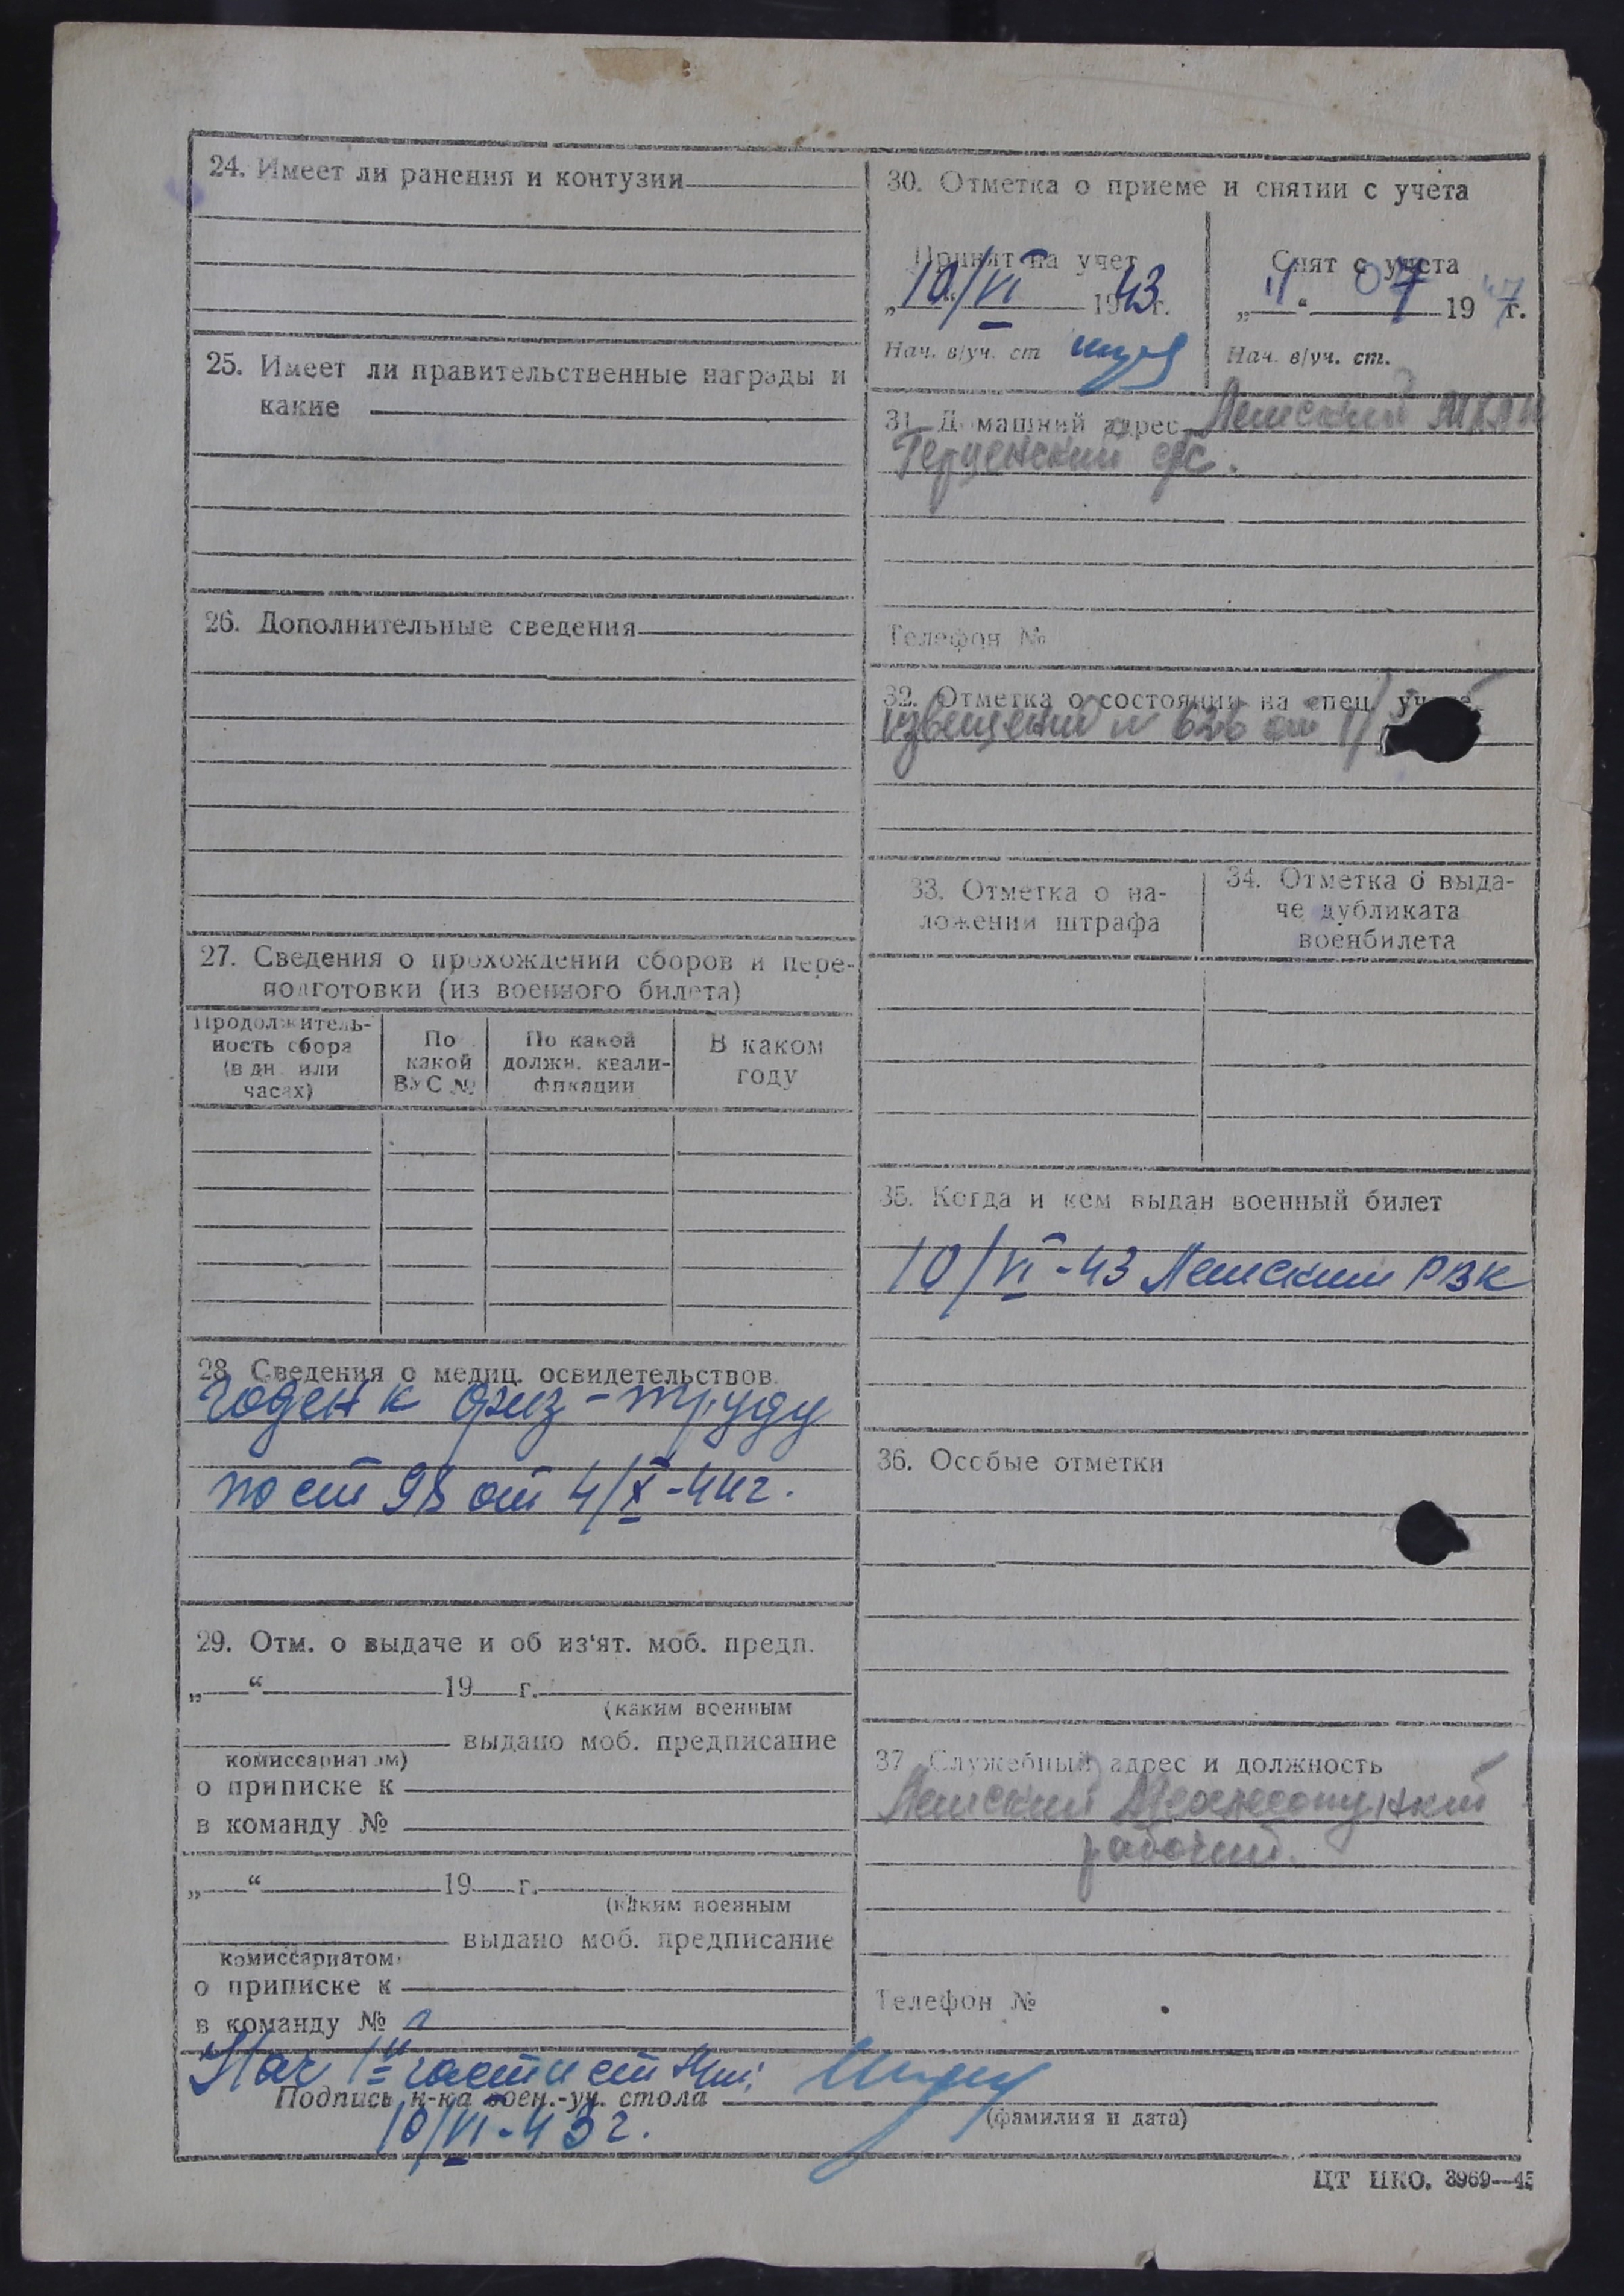 24. Имеет ли ранения и контузии
25. Имеет ли правительственные награды и
какие
26. Дополнительные сведения
27. Сведения о прохождении сборов и пере-
подготовки (из военного билета)
Продолжитель-
ность сбора
(в дн. или
часах)
По
какой
ВУС №
По какой
должн. квали-
фикации
В каком
году
28. Сведения о медиц. освидетельствов.
годен к физ-труду
по ст 98 от 4/X-44г.
29. Отм. о выдаче и об из‘ят. моб. предп.
„ “ 19 г.
(каким военным
выдано моб. предписание
комиссариатом)
о приписке к
в команду №
„ “ 19 г.
(каким военным
выдано моб. предписание
комиссариатом)
о приписке к
в команду №
30. Отметка о приеме и снятии с учета
Принят на учет
„10/VI 1943г.
Нач. в/уч. ст
Снят с учета
„11“ 07 1947г.
Нач. в/уч. ст.
31. Домашний адрес Ленский
Герценский с/с.
Телефон №
32. Отметка о состоянии на спец. учете
извещение № 626 от 1/
33. Отметка о на-
ложении штрафа
34. Отметка о выда-
че дубликата
военбилета
35. Когда и кем выдан военный билет
10/VI-43 Ленским РВК
36. Особые отметки
37. Служебный адрес и должность
Ленский
рабочий.
Телефон №
Нач 1й части ст
Подпись н-ка воен.-уч. стола
10/VI-43г.
(фамилия и дата)
ЦТ НКО. 3969—43